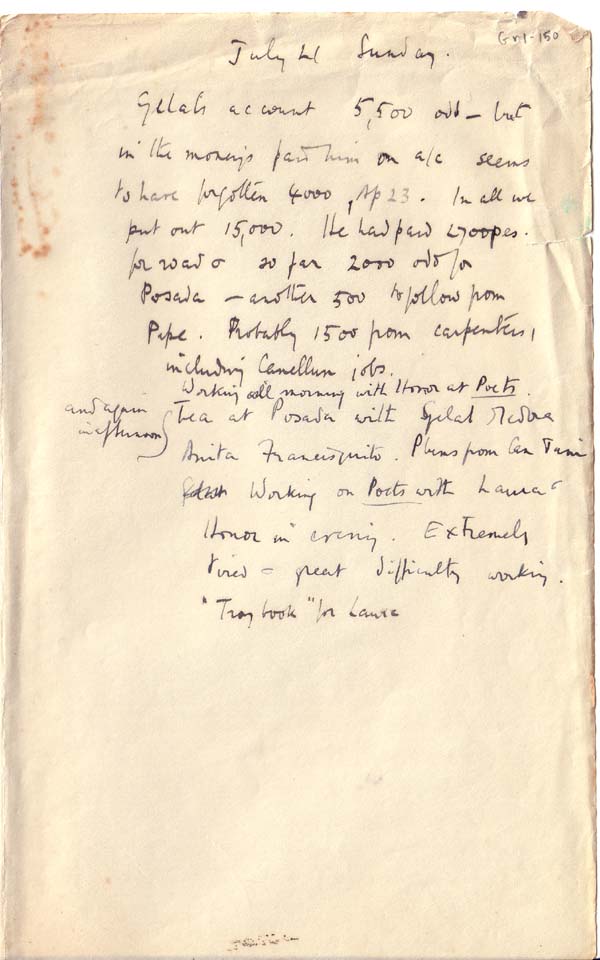 Gr1-150
July 21 Sunday.
Gelat's account 5,500 odd – but
in the moneys paid him on a/c seems
to have forgotten 4000, Ap 23. In all we
put out 15,000. He had paid 2700 pes.
for road & so far 2000 odd for
Posada – another 500 to follow from
Pepe. Probably 1500 from carpenters,
including Canellun jobs.
Working all morning with Honor at Poets.
and again
in afternoon
Tea at Posada with Gelat Medora
Anita Francisquito. Plums from Can Torrent
Working on Poets with Laura &
Honor in evening. Extremely
tired – great difficulty working.
"Troy book" for Laura